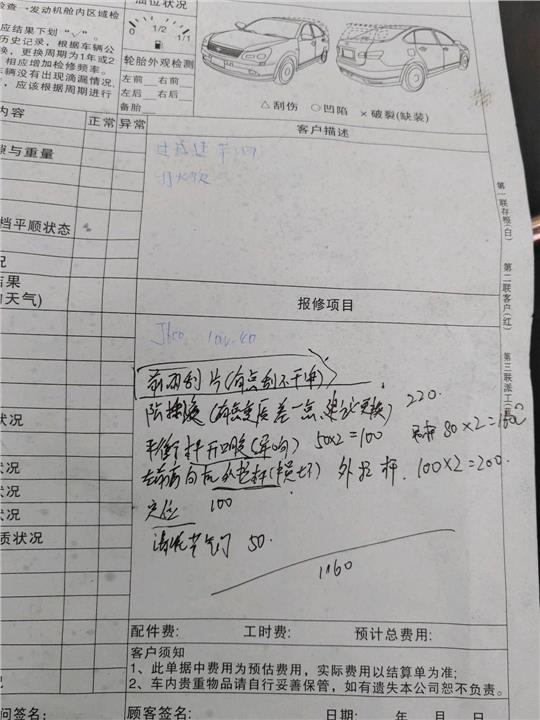 检查→发动机舱内区域检
油位状况
应结果下划"√"。
历史记录，根据车辆公
换，更换周期为1年或2
相应增加检修频率。
车辆没有出现滴漏情况，
，应该根据周期进行
0 1/2 1/1
轮胎外观检测
左前 右前
左后 右后
备胎
△刮伤 ○凹陷 ×破裂(缺装)
内容 正常 异常
客户描述
隙与重量
档平顺状态
况
结果
天气)
报修项目
前雨刮片(有点刮不干净)
220.
平衡杆开口胶(异响) 50×2=100 80×2=160
外拉杆 100×2=200.
定位 100
清洗节气门 50.
1160
状况
状况
状况
状况
质状况
第一联存根(白)
第二联客户(红)
第三联派工
配件费: 工时费: 预计总费用:
客户须知
1、此单据中费用为预估费用，实际费用以结算单为准;
2、车内贵重物品请自行妥善保管，如有遗失本公司恕不负责。
问签名: 顾客签名: 日期: 年 月 日